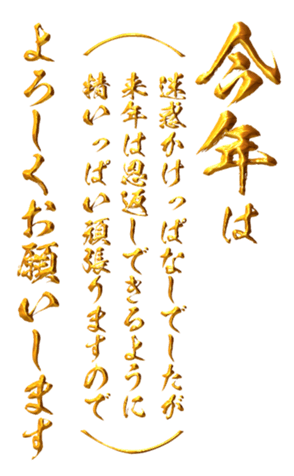 今年は
(迷惑かけっぱなしでしたが
来年は恩返しできるように
精いっぱい頑張りますので)
よろしくお願いします